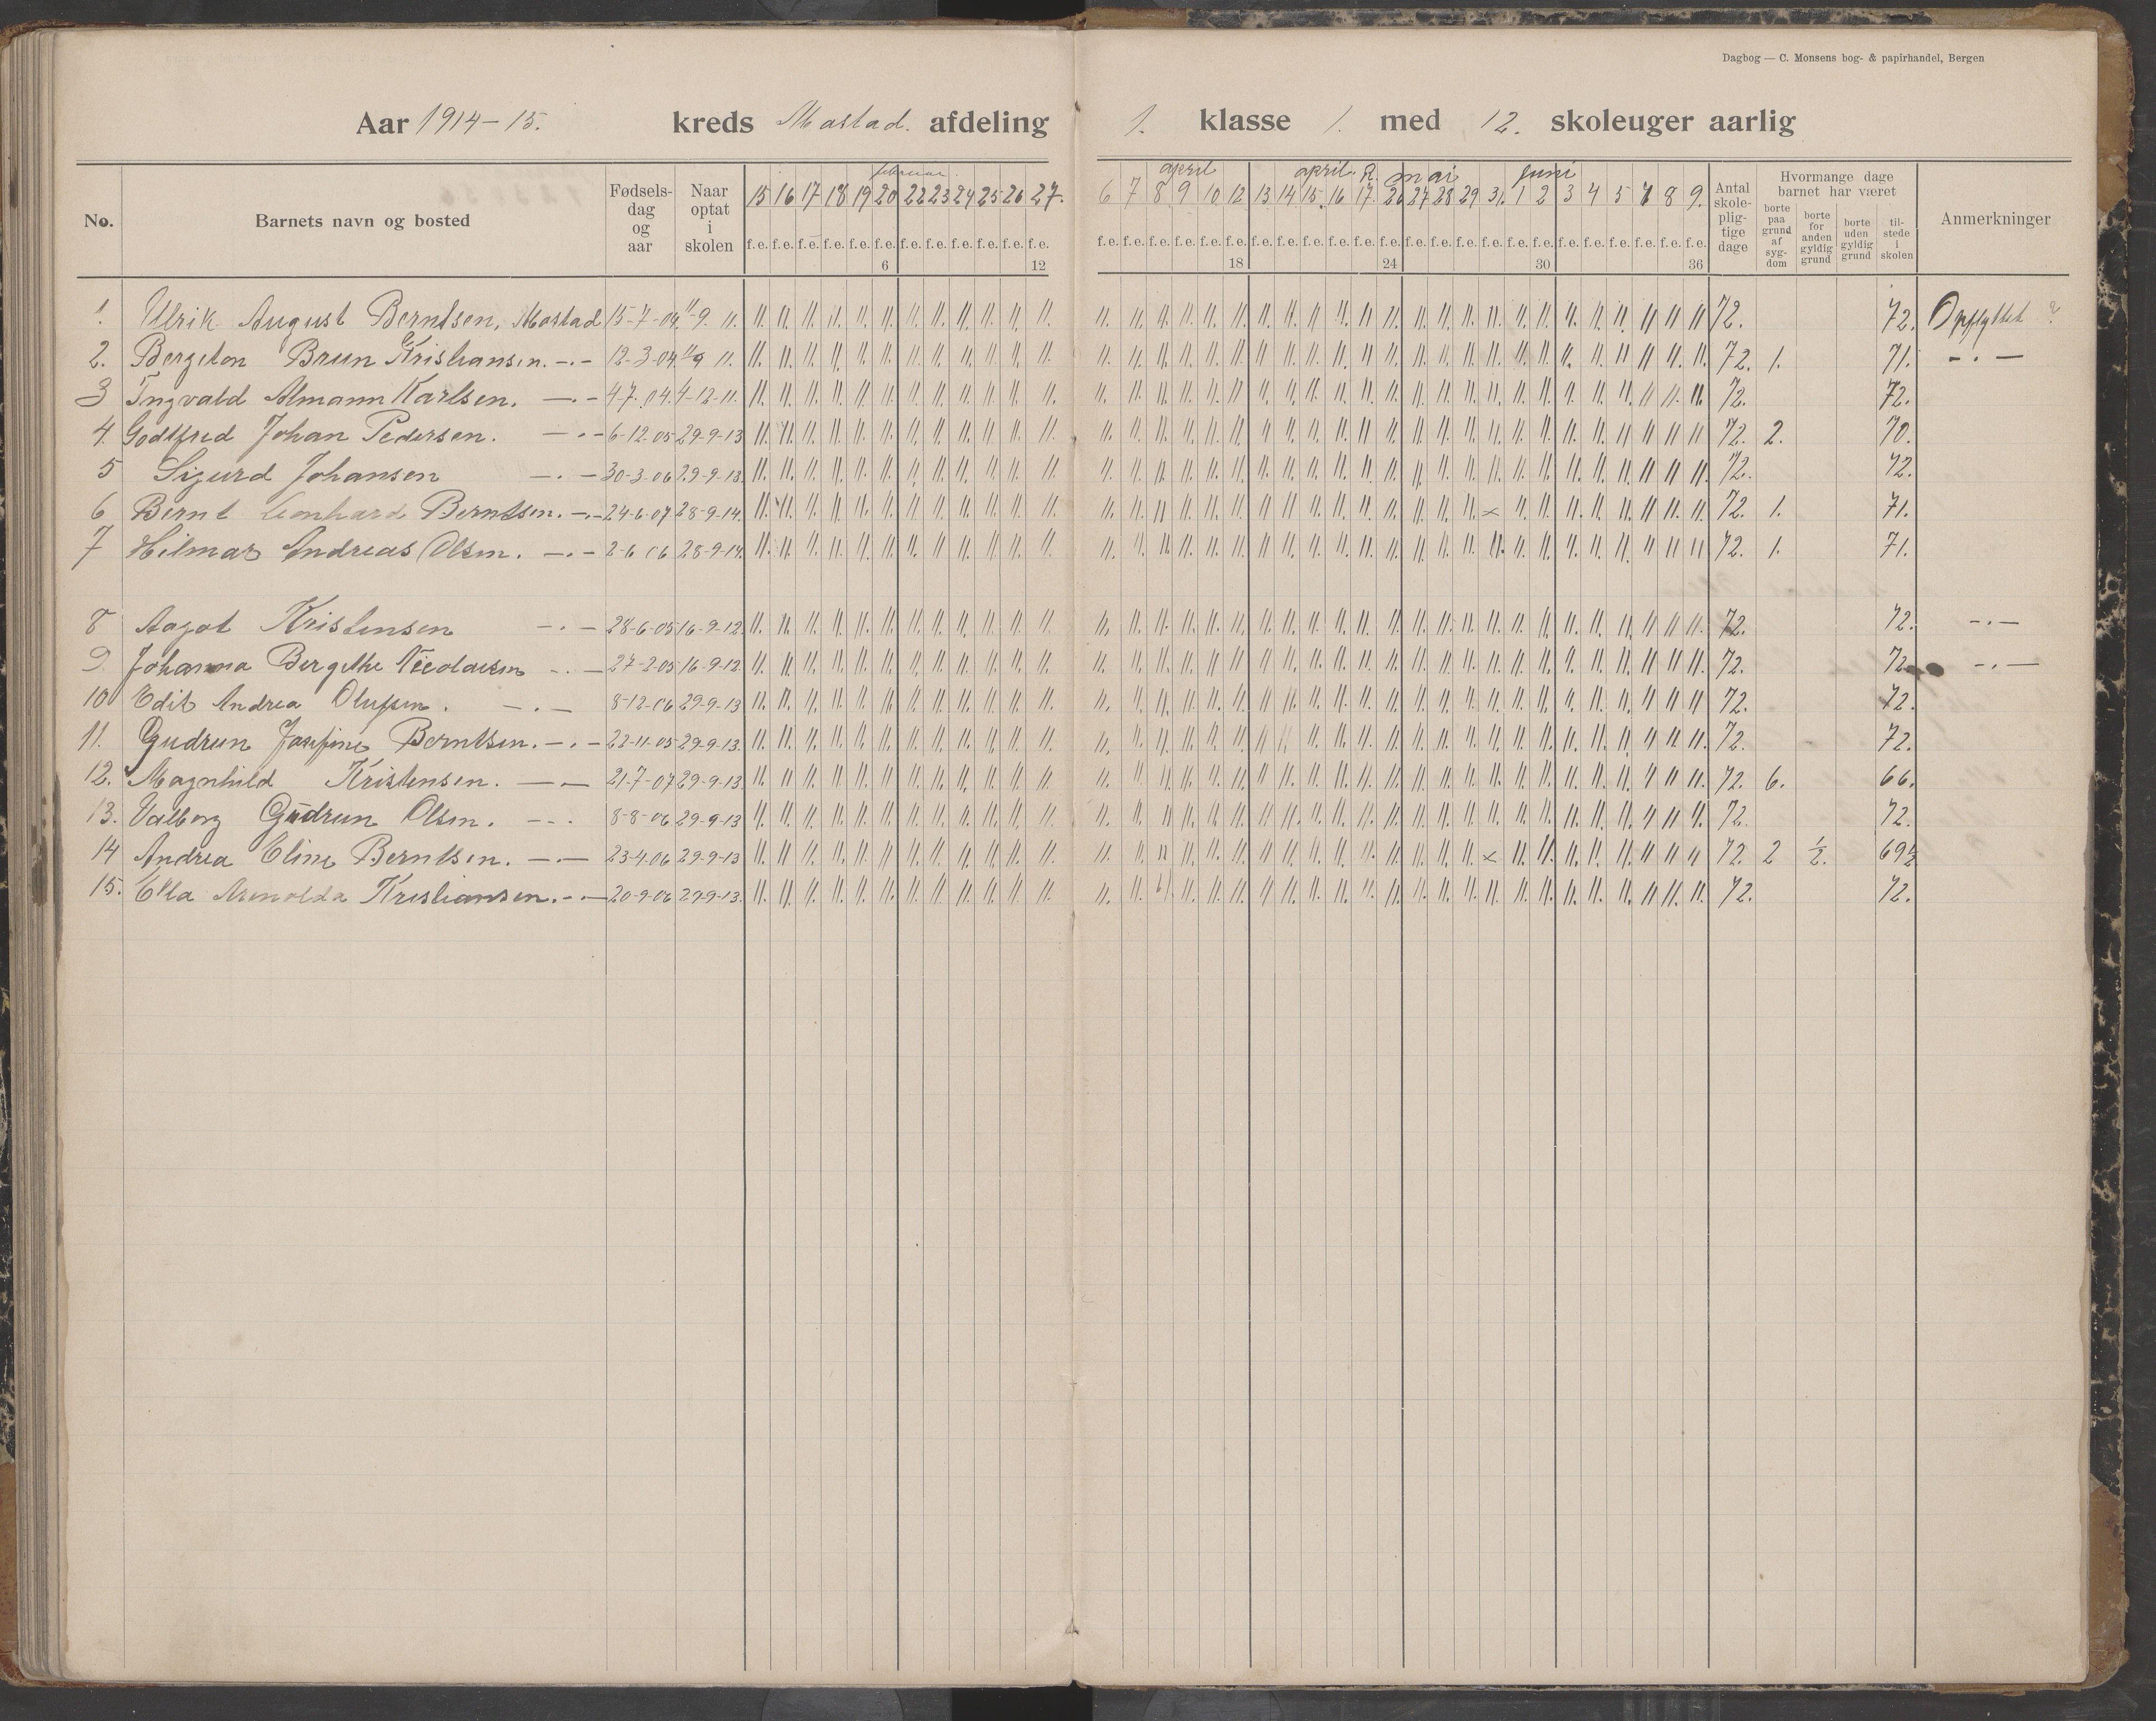 Dagbog — C. Monsens bog- & papirhandel, Bergen
Aar 1914-15. kreds Mastad. afdeling 1. klasse 1. med 12. skoleuger aarlig
No. Barnets navn og bosted Fødsels-dag og aar Naar optat i skolen
februar.
15 16 17 18 19 20 22 23 24 25 26 27.
april april mai juni
6 7 8 9 10 12 13 14 15 16 17 26 27 28 29 31 1 2 3 4 5 7 8 9.
f.e. f.e. f.e. f.e. f.e. f.e. f.e. f.e. f.e. f.e. f.e. f.e. f.e. f.e. f.e. f.e. f.e. f.e. f.e. f.e. f.e. f.e. f.e. f.e. f.e. f.e. f.e. f.e. f.e. f.e. f.e. f.e. f.e. f.e. f.e. f.e.
6 12 18 24 30 36
Antal skole-plig-tige dage
Hvormange dage barnet har været
borte paa grund af syg-dom
borte for anden gyldig grund
borte uden gyldig grund
til-stede i skolen
Anmerkninger
1. Ulrik August Berntsen, Mastad 15-7-04 11-9. 11. 72. 72. Opflyttet
2. Bergiton Brun Kristiansen. -.- 12-3-04 11 9 11. 72. 1. 71. -.-
3 Ingvald Almann Karlsen. -.- 4-7.04. 4-12-11. 72. 72.
4. Godtfred Johan Pedersen. -.- 6-12-05 29-9-13 72. 2. 70.
5 Sigurd Johansen -.- 30-3-06 29-9-13. 72. 72.
6 Bernt Leonhard Berntsen. -.- 24-6-07 28-9-14. 72. 1. 71.
7 Hilmar Andreas Olsen. -.- 2-6 06 28-9-14. 72. 1. 71.
8 Aagot Kristensen -.- 28-6-05 16-9-12. 72. 72. -.-
9. Johanna Bergithe Nicolaisen -.- 27-2-05 16-9-12. 72. 72. -.-
10 Edit Andrea Olufsen. -.- 8-12-06 29-9-13 72. 72.
11. Gudrun Josefine Berntsen. -.- 22-11-05 29-9-13. 72. 72.
12. Magnhild Kristensen. -.- 21-7-07 29-9-13. 72. 6. 66.
13. Valborg Gudrun Olsen. -.- 8-8-06 29-9-13 72. 72.
14 Andrea Eline Berntsen. -.- 23-4-06 29-9-13 72. 2 ½. 69½
15. Ella Arnolda Kristiansen. -.- 20-9-06 29-9-13. 72. 72.